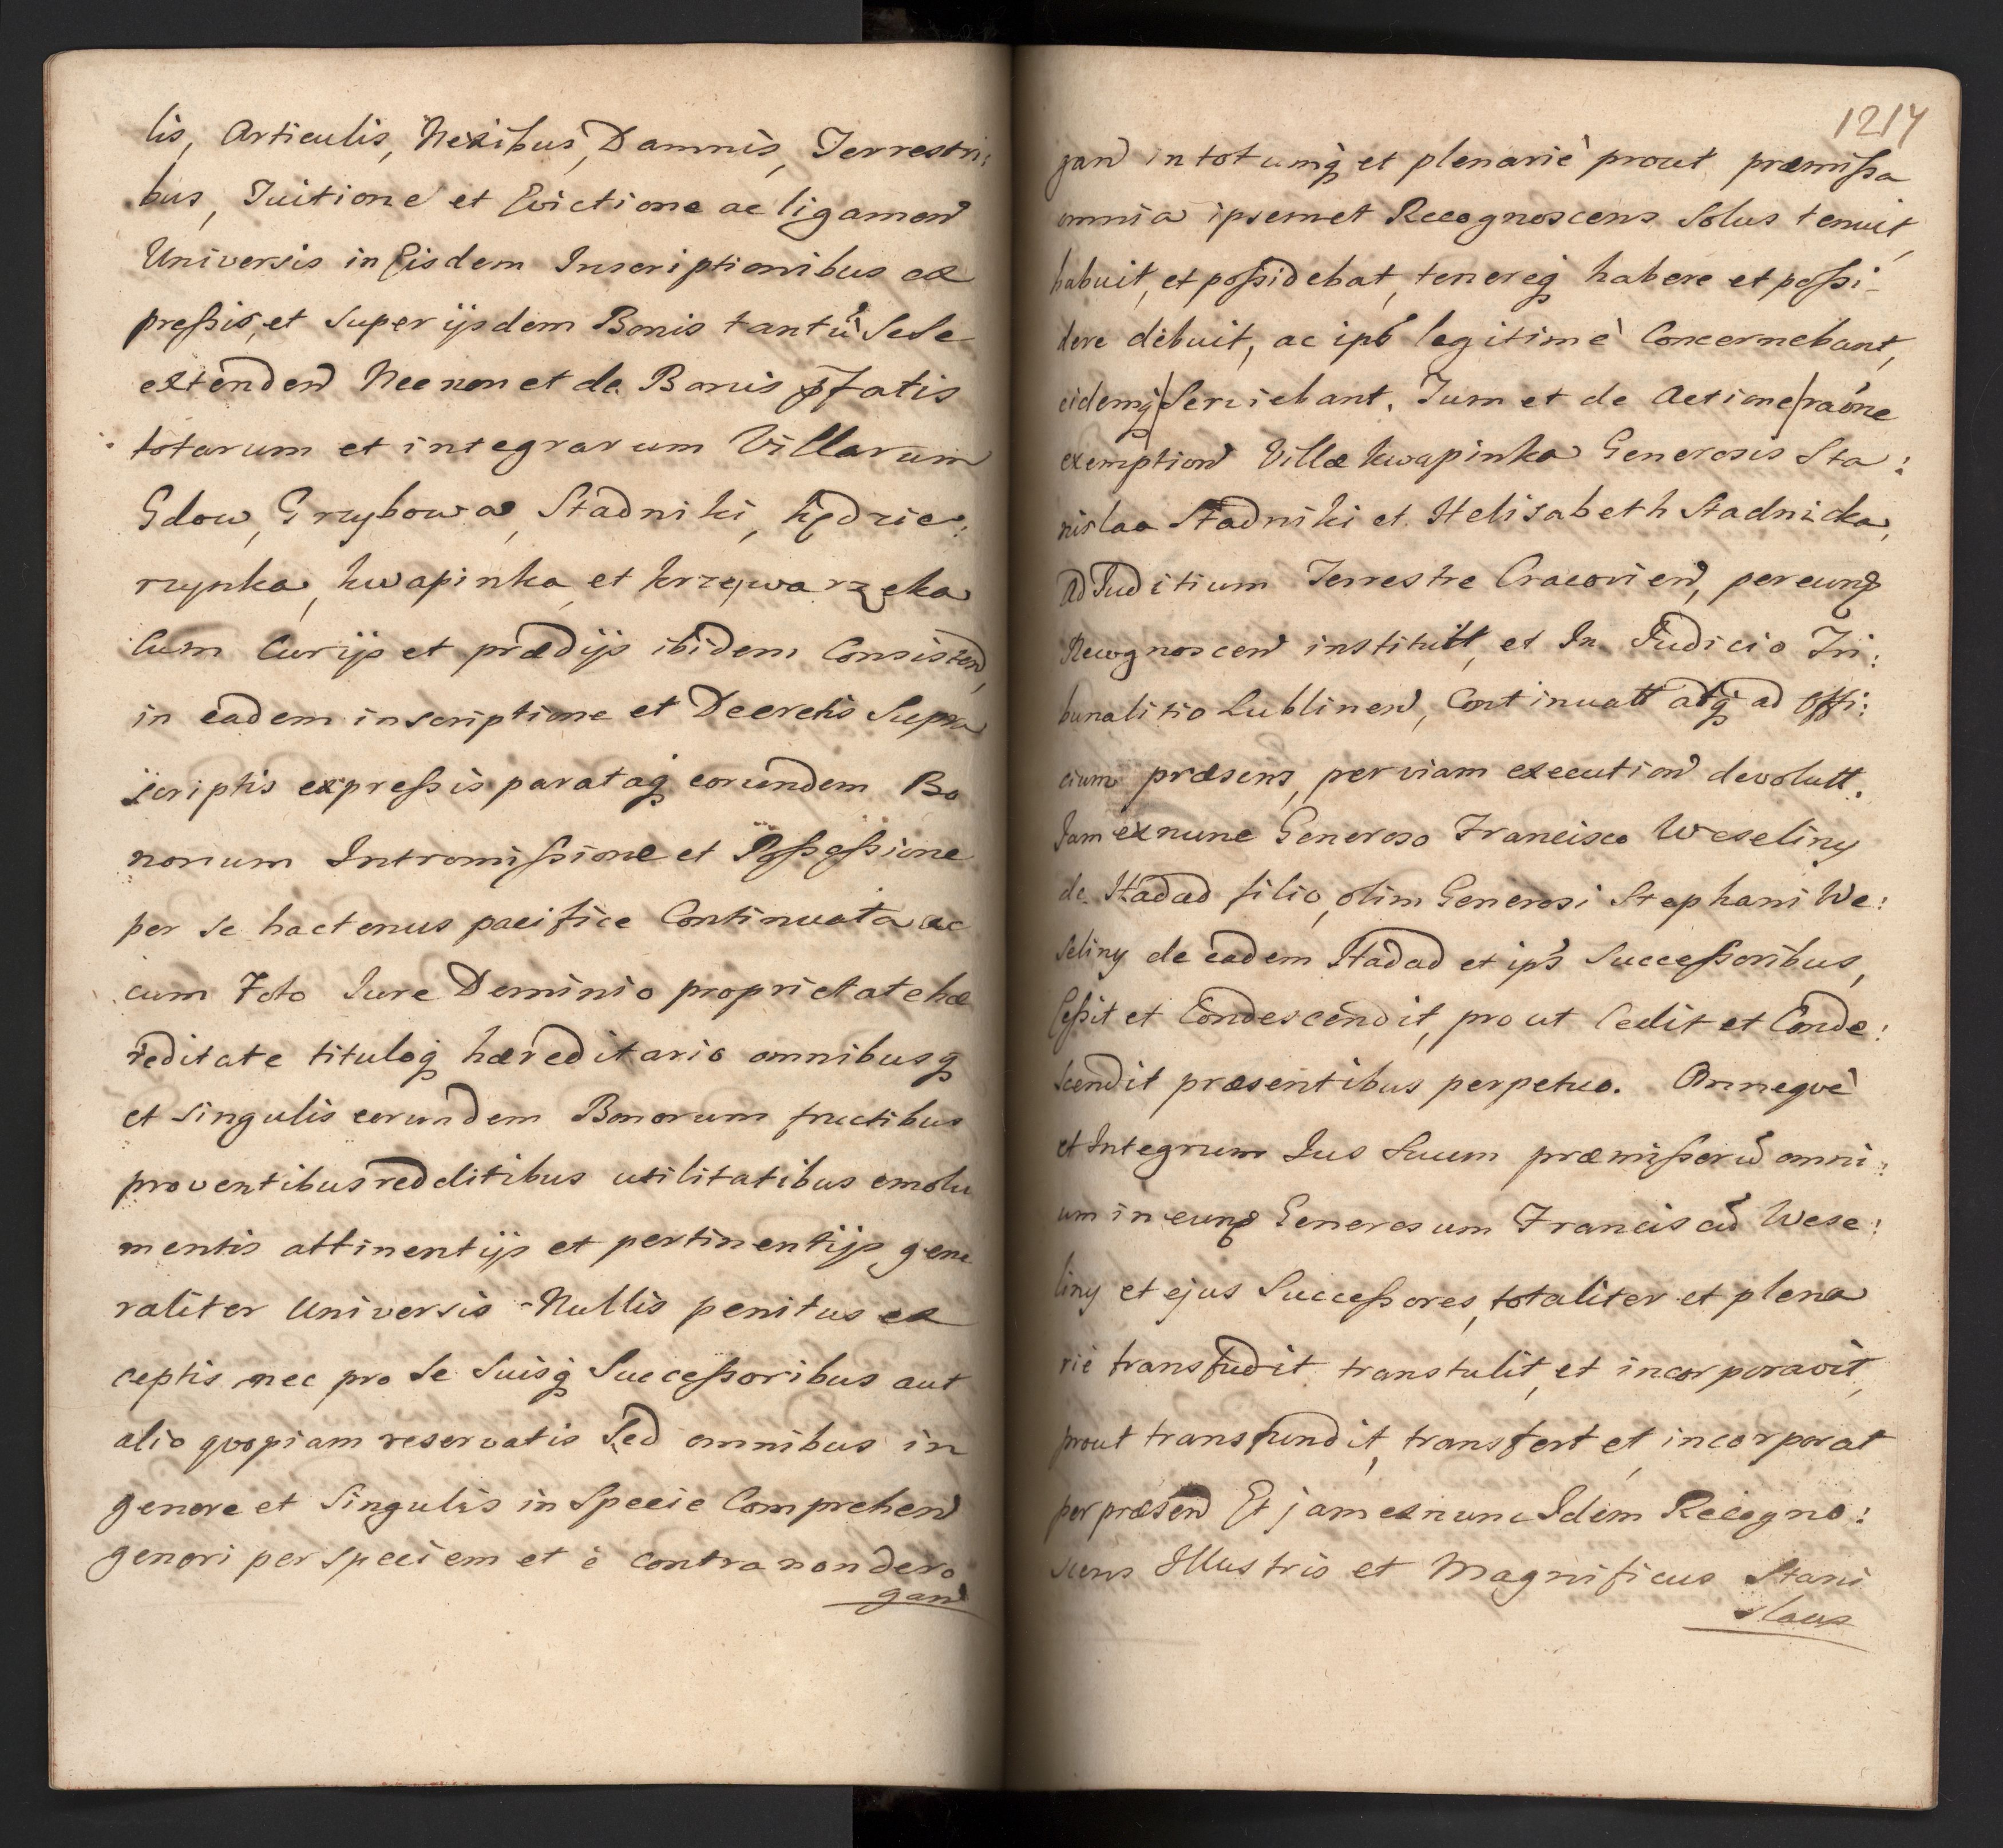 lis, Articulis, Nexibus, Damnis, Terrestri:
bus, Tuitione et Evictione ac ligamen
Universis in Eisdem Inscriptionibus ex
preßis, et super ijsdem Bonis tantũ Sese
extenden Nec non et de Bonis pfatis
totarum et integrarum Villarum
Gdow, Grzybowa, Stadniki, Kędzie:
rzynka, Kwapinka et Krzywarzeka
Cum Curijs et prædijs ibidem Consisten,
in eadem inscriptione et Decretis Supra
scriptis expreßis parataq eorundem Bo
norum Intromißione et Poßeßione
per se hactenus pacifice Continuata ac
cum Toto Iure Dominio proprietate hæ
reditate tituloq hæreditario omnibusq
et singulis eorundem Bonorum fructibus
proventibus redditibus utilitatibus emolu
mentis attinentijs et pertinentijs gene
raliter Universis Nullis penitus ex
ceptis nec pro se suisq Succeßoribus aut
alio qvopiam reservatis Sed omnibus in
genere et Singulis in Specie Comprehen
generi per speciem et è contra non dero
gan
1217
gan in totumq et plenariè prout præmißa
omnia ipsemet Recognoscens Solus tenuit,
habuit, et poßidebat, tenereq habere et poßi-
dere debuit, ac ips legitimè Concernebant,
eidemq Serviebant. Tum et de Actione raõne
exemption Villæ Kwapinka Generosis Sta:
nislao Stadniki et Helisabeth Stadnicka,
Ad Iuditium Terrestre Cracovien, per eunq
Recognoscen institutt, et In Iudicio Tri:
bunalitio Lublinen, Continuatt atq ad Offi:
cium præsens, per viam execution devolutt.
Iam exnunc Generoso Francisco Weseliny
de Hadad filio, olim Generosi Stephani We:
seliny de eadem Hadad et ips Succeßoribus,
Ceßit et Condescendit, prout Cedit et Conde:
scendit præsentibus perpetuo. Omneqvè
et Integrum Ius Suum præmißorũ omni:
um in eunq Generosum Franciscũ Wese:
liny et ejus Succeßores, totaliter et plena
riè transfudit transtulit, et incorporavit,
prout transfundit, transfert et incorporat
per præsen Et jam exnunc Idem Recogno:
scens Illustris et Magnificus Stani
slaus